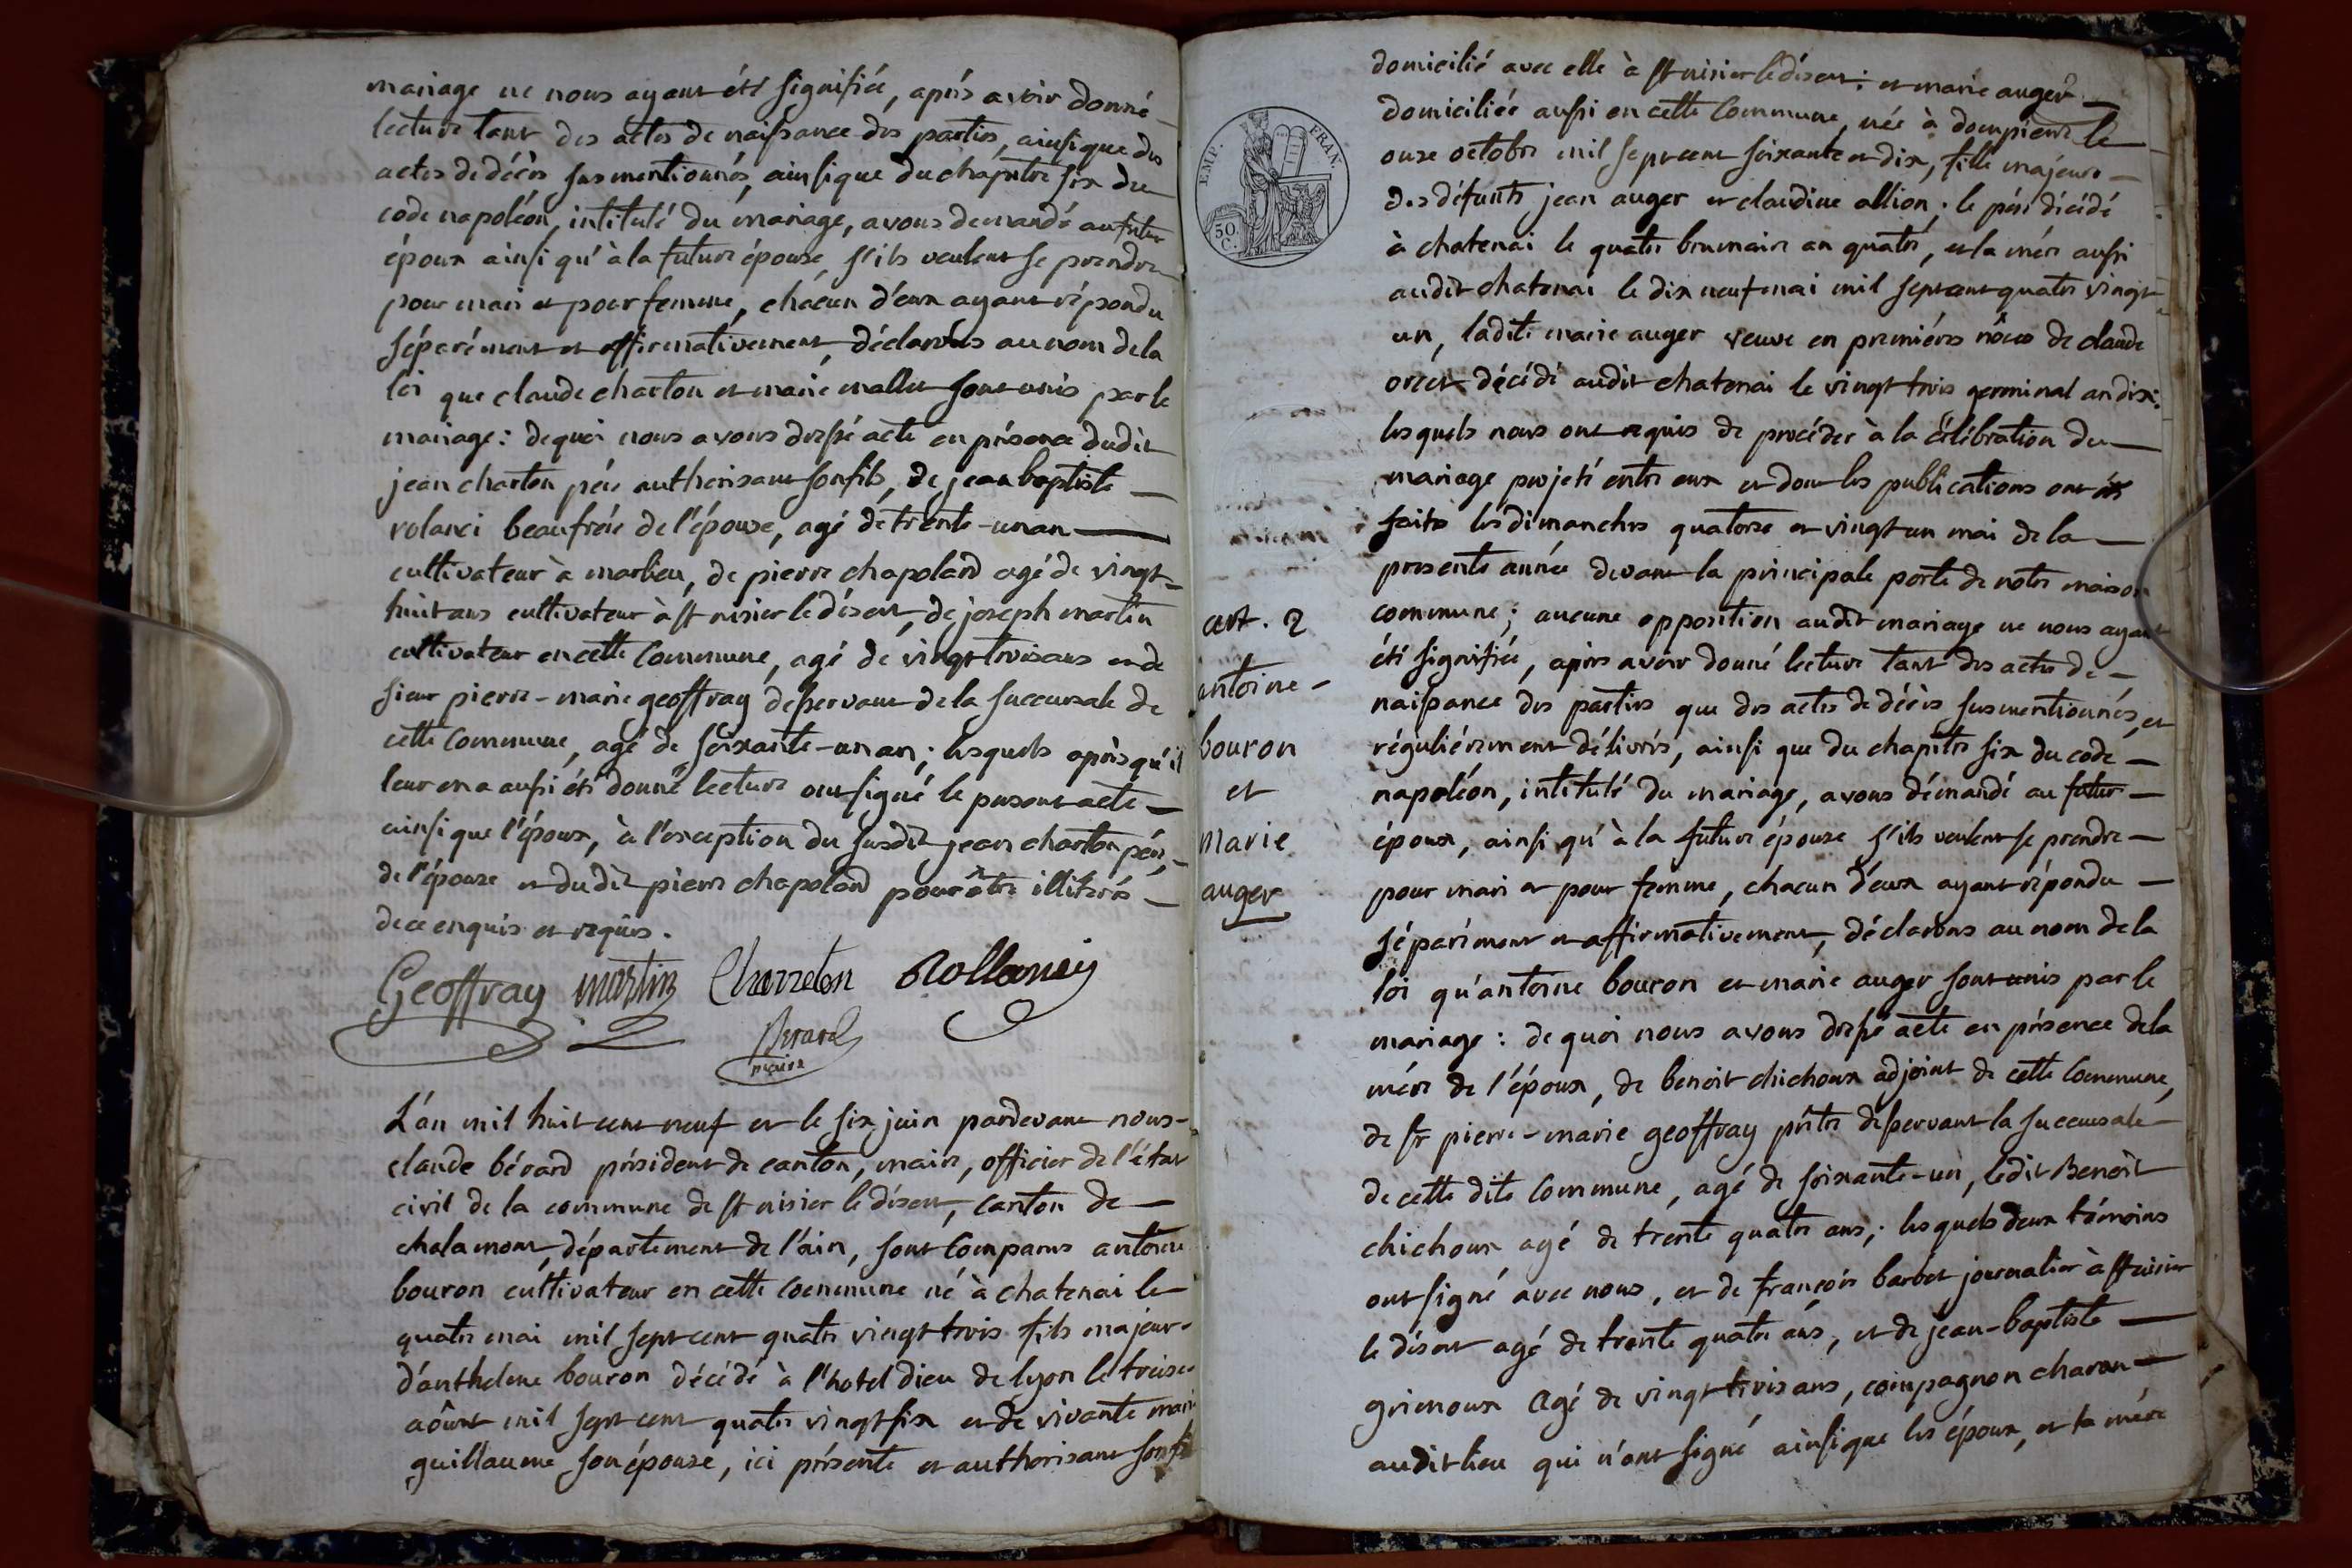 mariage ne nous ayant été signifiée, après avoir donné
lecture tant des actes de naissance des parties, ainsi que des
actes de décès susmentionnés, ainsi que du chapitre six du
code napoléon, intitulé du mariage, avons demandé au futur
époux ainsi qu'à la future épouse, s'ils veulent se prendre
pour mari et pour femme, chacun d'eux ayant répondu
séparément et affirmativement, déclarons au nom de la
loi que claude charton et marie mallet sont unis par le
mariage : de quoi nous avons dressé acte en présence dudit
jean charton père authorisant son fils, de jean baptiste
rolanci beaufrère de l'épouse, agé de trente-un an
cultivateur à marlieu, de pierre chapoland agé de vingt-
huit ans cultivateur à st nisier le désert, de joseph martin
cultivateur en cette Commune, agé de vingt trois ans et de
sieur pierre-marie geoffray desservant de la succursale de
cette Commune, agé de soixante-un an ; lesquels après qu'il
leur en a aussi été donné lecture ont signé le présent acte
ainsi que l'époux, à l'exception du susdit jean charton père,
de l'épouse et dudit pierre chapoland pour être illitérés
de ce enquis et requis.
Geoffray martin Charreton Rollancy
Bérard
maire
L'an mil huit cent neuf et le six juin pardevant nous
claude bérard président de canton, maire, officier de l'état
civil de la commune de st nisier le désert, canton de
chalamont, département de l'ain, sont Comparus antoine
bouron cultivateur en cette Commune né à chatenai le
quatre mai mil sept cent quatre vingt trois fils majeur
d'anthelme bouron décédé à l'hotel dieu de lyon le treise
aôust mil sept cent quatre vingt six et de vivante marie
guillaume son épouse, ici présente et authorisant son fils
EMP. FRAN.
50.
C.
domicilié avec elle à st nisier le désert : et marie auger
domiciliée aussi en cette Commune, née à dompierre le
onze octobre mil sept cent soixante et dix, fille majeure
des défunts jean auger et claudine allion ; le père décédé
à chatenai le quatre brumaire an quatre, et la mère aussi
audit chatenai le dix neuf mai mil sept cent quatre vingt
un, ladite marie auger veuve en premières nôces de claude
orcet décédé audit chatenai le vingt trois germinal an dix :
lesquels nous ont requis de procéder à la célébration du
mariage projeté entre eux et dont les publications ont été
faites les dimanches quatorze et vingt un mai de la
presente année devant la principale porte de notre maison
commune ; aucune opposition audit mariage ne nous ayant
été signifiée, après avoir donné lecture tant des actes de
naissance des parties que des actes de décès susmentionnés, et
régulièrement délivrés, ainsi que du chapitre six du code
napoléon, intitulé du mariage, avons démandé au futur
époux, ainsi qu'à la future épouse s'ils veulent se prendre
pour mari et pour femme, chacun d'eux ayant répondu
séparément et affirmativement, déclarons au nom de la
loi qu'antoine bouron et marie auger sont unis par le
mariage : de quoi nous avons dressé acte en présence de la
mère de l'époux, de benoit chichoux adjoint de cette Commune,
de sr pierre-marie geoffray prêtre desservant la succursale
de cette dite Commune, agé de soixante-un, ledit Benoît
chichoux agé de trente quatre ans ; lesquels deux témoins
ont signé avec nous, et de françois barbet journalier à st nisier
le désert agé de trente quatre ans, et de jean-baptiste
grimoux agé de vingt trois ans, compagnon charon
audit lieu qui n'ont signé ainsi que les époux, et la mère
art. 2
antoine
bouron
et
marie
auger